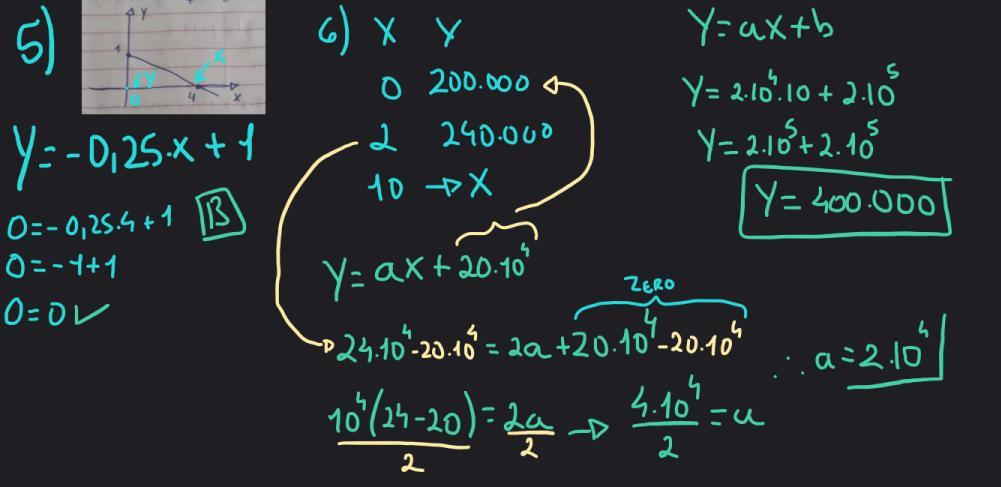 5)
Y
1
Y
X
0
4
X
Y=-0,25.X+1
0=-0,25.4+1
B
0=-1+1
0=0✓
6) X Y
0 200.000
2 240.000
10 → X
Y= ax+20.10⁴
ZERO
24.10⁴-20.10⁴=2a+20.10⁴-20.10⁴
10⁴(24-20)/2=2a/2 → 4.10⁴/2=a
∴ a=2.10⁴
Y=ax+b
Y=2.10⁴.10+2.10⁵
Y=2.10⁵+2.10⁵
Y=400.000